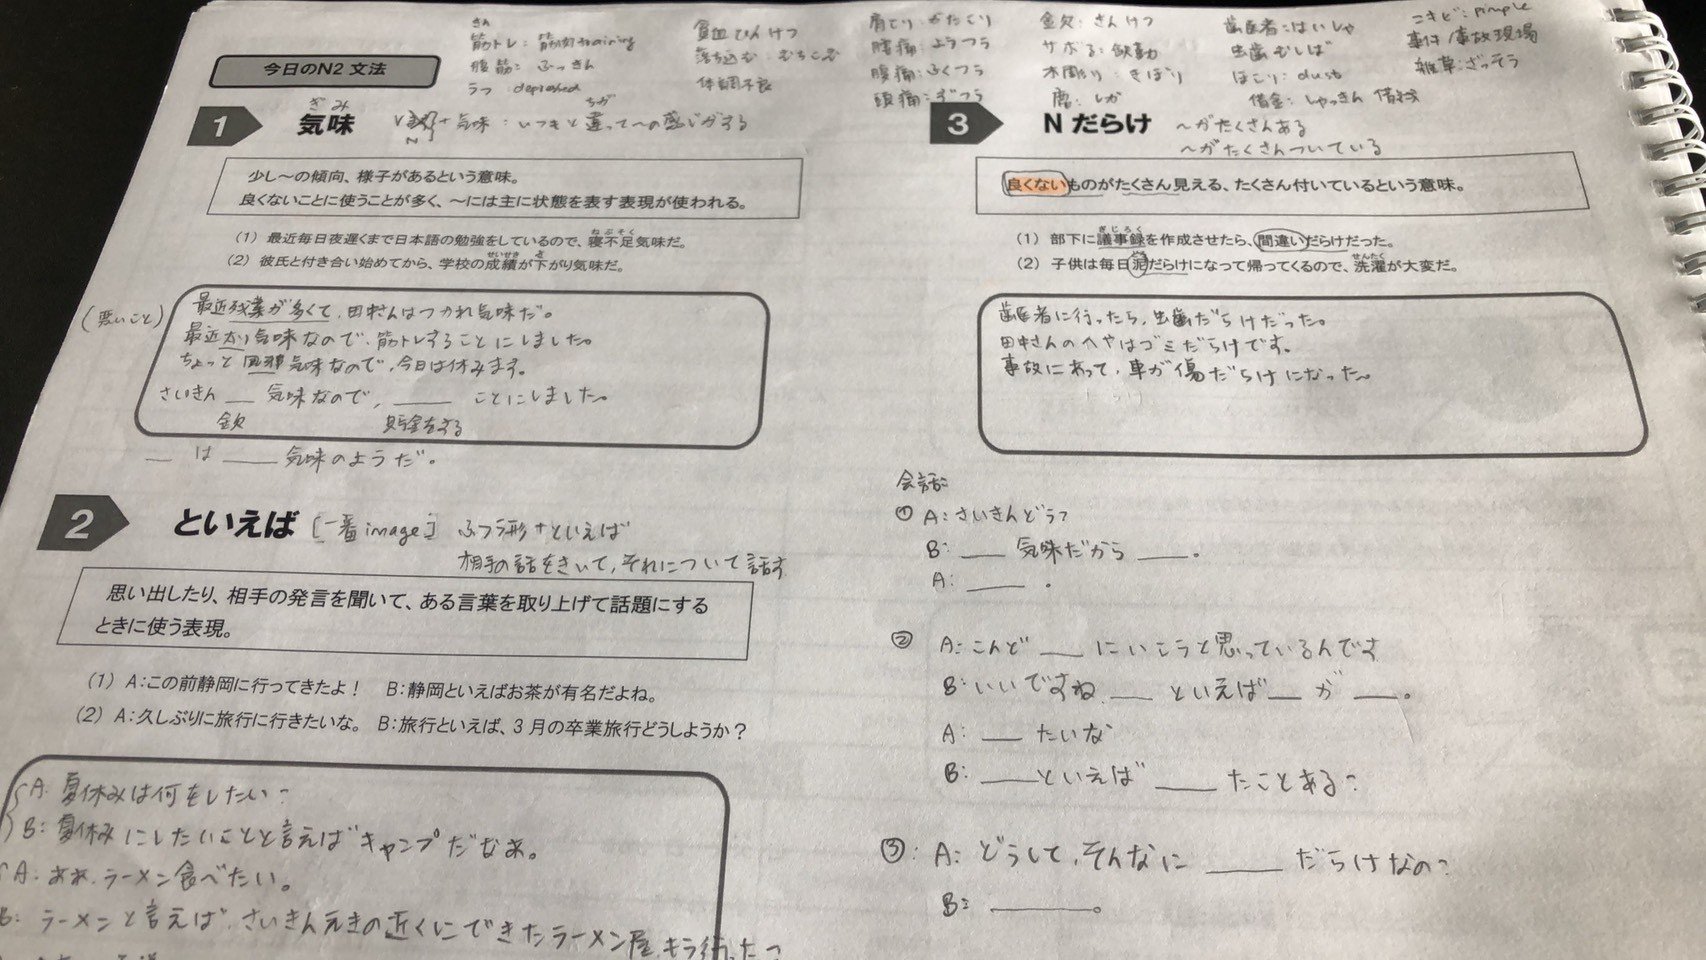 今日のN2文法
筋トレ：筋肉training
腹筋：ふっきん
うつ depressed
貧血 ひんけつ
落ち込む：おちこむ
体調不良
肩こり：かたこり
腰痛：ようつう
腹痛：ふくつう
頭痛：ずつう
金欠：きんけつ
サボる
木彫り：きぼり
鹿：しか
歯医者：はいしゃ
虫歯 むしば
ほこり：dust
借金：しゃっきん
ニキビ：pimple
事件/事故現場
雑草：ざっそう
1 気味 ぎみ
+気味：いつもと違って〜の感じがする
少し〜の傾向、様子があるという意味。
良くないことに使うことが多く、〜には主に状態を表す表現が使われる。
(1) 最近毎日夜遅くまで日本語の勉強をしているので、寝不足気味だ。
(2) 彼氏と付き合い始めてから、学校の成績が下がり気味だ。
(悪いこと)
最近残業が多くて、田中さんはつかれ気味だ。
最近太り気味なので、筋トレすることにしました。
ちょっと風邪気味なので、今日は休みます。
さいきん ＿ 気味なので、＿＿ ことにしました。
金欠 貯金をする
＿ は ＿＿ 気味のようだ。
2 といえば [一番image] ふつう形+といえば
相手の話をきいて、それについて話す
思い出したり、相手の発言を聞いて、ある言葉を取り上げて話題にする
ときに使う表現。
(1) A：この前静岡に行ってきたよ！ B：静岡といえばお茶が有名だよね。
(2) A：久しぶりに旅行に行きたいな。 B：旅行といえば、3月の卒業旅行どうしようか？
A: 夏休みは何をしたい？
B: 夏休みにしたいことと言えばキャンプだなぁ。
A: ああ、ラーメン食べたい。
B: ラーメンと言えば、さいきんえきの近くにできたラーメン屋、もう行った？
3 Nだらけ 〜がたくさんある
〜がたくさんついている
良くないものがたくさん見える、たくさん付いているという意味。
(1) 部下に議事録を作成させたら、間違いだらけだった。
(2) 子供は毎日泥だらけになって帰ってくるので、洗濯が大変だ。
歯医者に行ったら、虫歯だらけだった。
田中さんのへやはゴミだらけです。
事故にあって、車が傷だらけになった。
会話：
① A: さいきんどう？
B: ＿＿ 気味だから ＿＿。
A: ＿＿。
② A: こんど ＿＿ にいこうと思っているんです
B: いいですね、＿＿ といえば ＿ が ＿＿。
A: ＿＿ たいな
B: ＿＿といえば ＿＿ たことある？
③: A: どうして、そんなに ＿＿ だらけなの？
B: ＿＿＿。